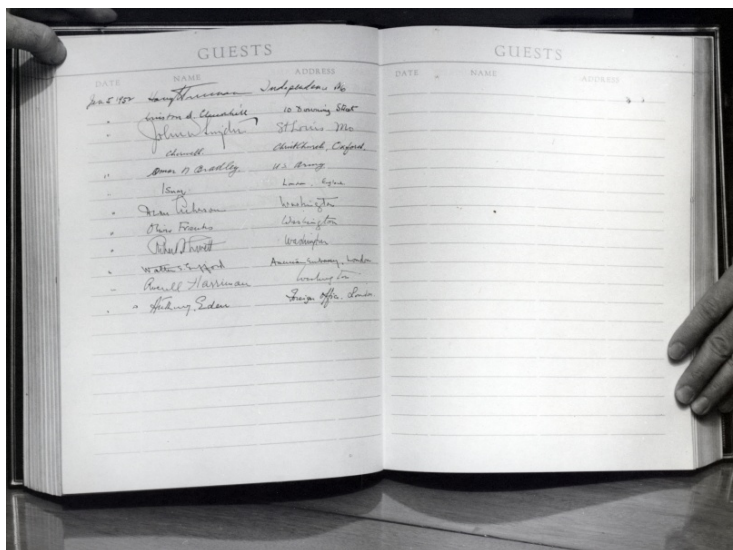 GUESTS
DATE NAME ADDRESS
Jan 5 1952 Harry S Truman Independence Mo
" Winston S. Churchill 10 Downing Street
" John W Snyder St Louis Mo
Cherwell Christchurch, Oxford.
" Omar N Bradley U.S. Army
" Ismay London, England
" Dean Acheson Washington
" Oliver Franks Washington
" Robert A Lovett Washington
" Walter S Gifford American Embassy, London
" Averell Harriman Washington
" " Anthony Eden Foreign Office, London
GUESTS
DATE NAME ADDRESS